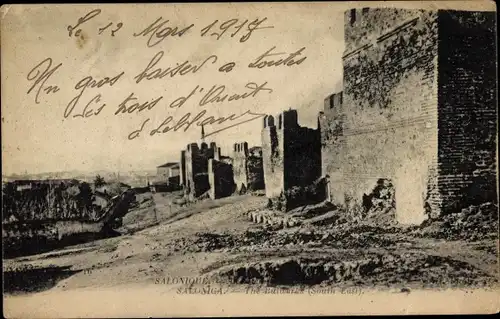 Le 12 Mars 1917
Un gros baiser a toutes
les trois d'Orient
d Leblanc
SALONIQUE
SALONICA. — The Bastions (South East).